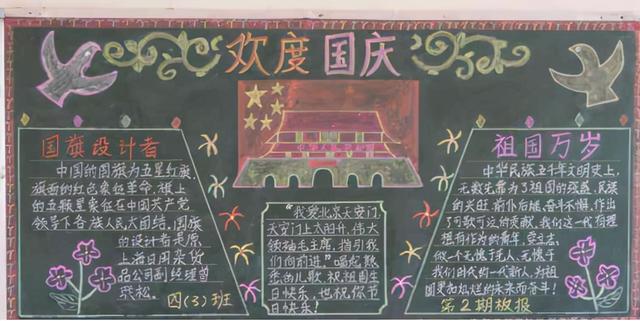 欢度国庆
国旗设计者
中国的国旗为五星红旗,
旗面的红色象征革命,旗上
的五颗星象征在中国共产党
领导下各族人民大团结,国旗
的设计者是原
上海日用杂货
品公司副经理曾
联松。
四(3)班
“我爱北京天安门,
天安门上太阳升,伟大
领袖毛主席,指引我
们向前进”唱起熟
悉的儿歌,祝祖国生
日快乐,也祝你节
日快乐!
祖国万岁
中华民族五千年文明史上,
无数先烈为了祖国的强盛,民族
的兴旺,前仆后继,奋斗不懈,作出
了可歌可泣的贡献,我们这一代有理
想有作为的青年,要立志,
做一个无愧于先人,无愧于
我们时代的一代新人,为祖
国更加灿烂的未来而奋斗!
第2期板报